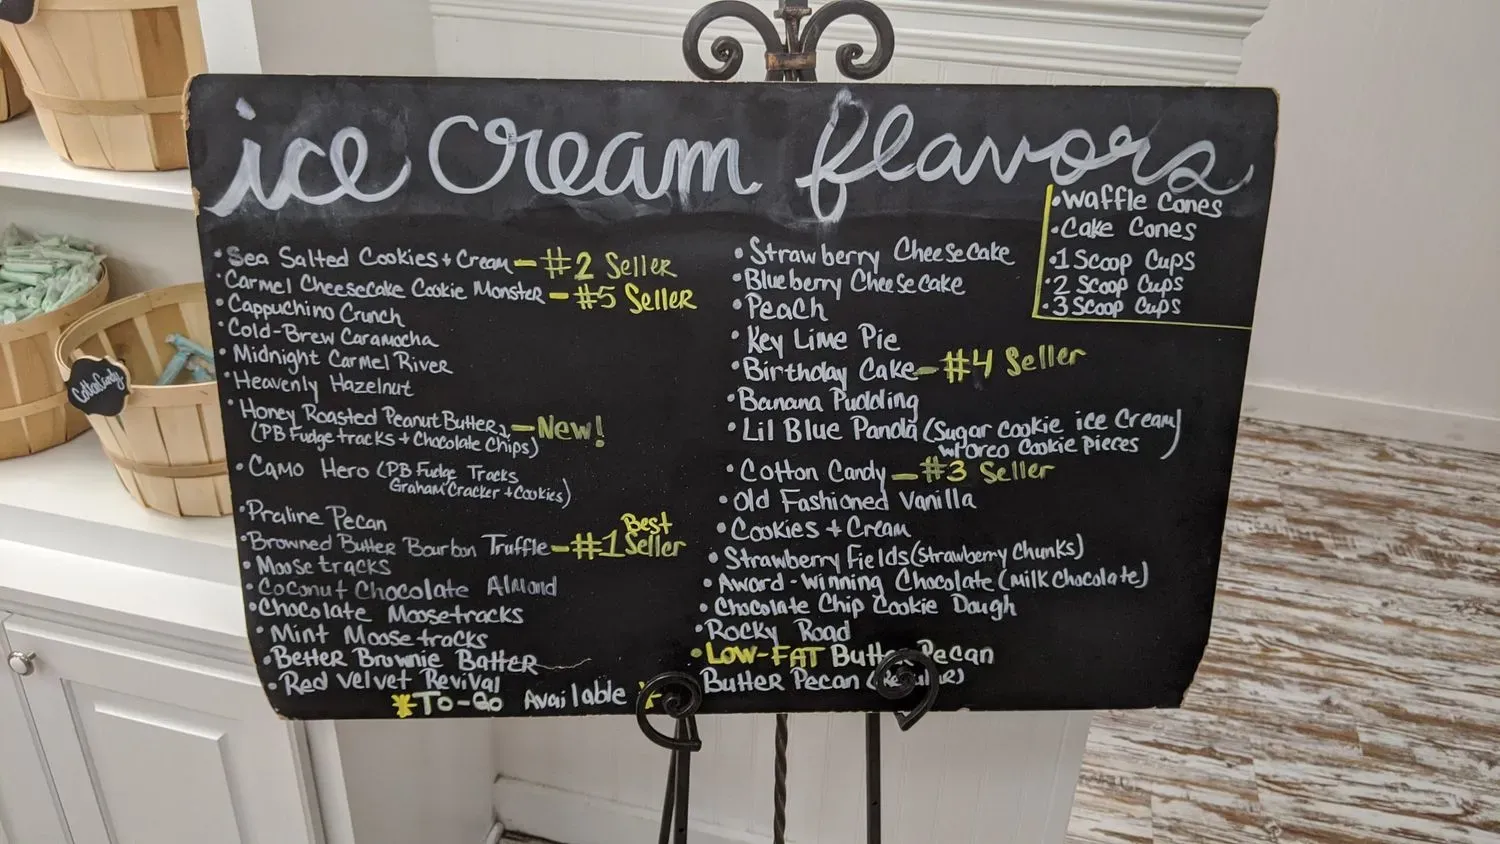 ice cream flavors
• Sea Salted Cookies + Cream - #2 Seller
• Carmel Cheesecake Cookie Monster - #5 Seller
• Cappuchino Crunch
• Cold-Brew Caramocha
• Midnight Carmel River
• Heavenly Hazelnut
• Honey Roasted Peanut Butter - New!
(PB Fudge tracks + Chocolate Chips)
• Camo Hero (PB Fudge Tracks
Graham Cracker + Cookies)
• Praline Pecan
• Browned Butter Bourbon Truffle - #1 Best Seller
• Moosetracks
• Coconut Chocolate Almond
• Chocolate Moosetracks
• Mint Moosetracks
• Better Brownie Batter
• Red Velvet Revival
* To-Go Available *
• Strawberry Cheesecake
• Blueberry Cheesecake
• Peach
• Key Lime Pie
• Birthday Cake - #4 Seller
• Banana Pudding
• Lil Blue Panda (Sugar cookie ice cream)
w/ Oreo Cookie pieces
• Cotton Candy - #3 Seller
• Old Fashioned Vanilla
• Cookies + Cream
• Strawberry Fields (Strawberry Chunks)
• Award-Winning Chocolate (Milk chocolate)
• Chocolate Chip Cookie Dough
• Rocky Road
• Low-FAT Butter Pecan
Butter Pecan
• Waffle Cones
• Cake Cones
• 1 Scoop Cups
• 2 Scoop Cups
• 3 Scoop Cups
Cotton Candy